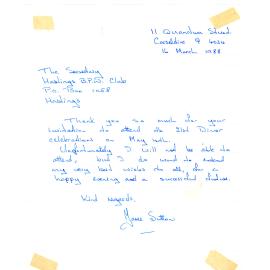 11
Carseldine Q 4034
16 March 1988
The Secretary
Hastings B.P.W. Club
P.O. Box 1058
Hastings
Thank you so much for your
invitation to attend the 21st Dinner
celebrations on May 4th.
Unfortunately I will not be able to
attend, but I do want to extend
my very best wishes to all, for a
happy evening and a successful
Kind regards.
Sutton